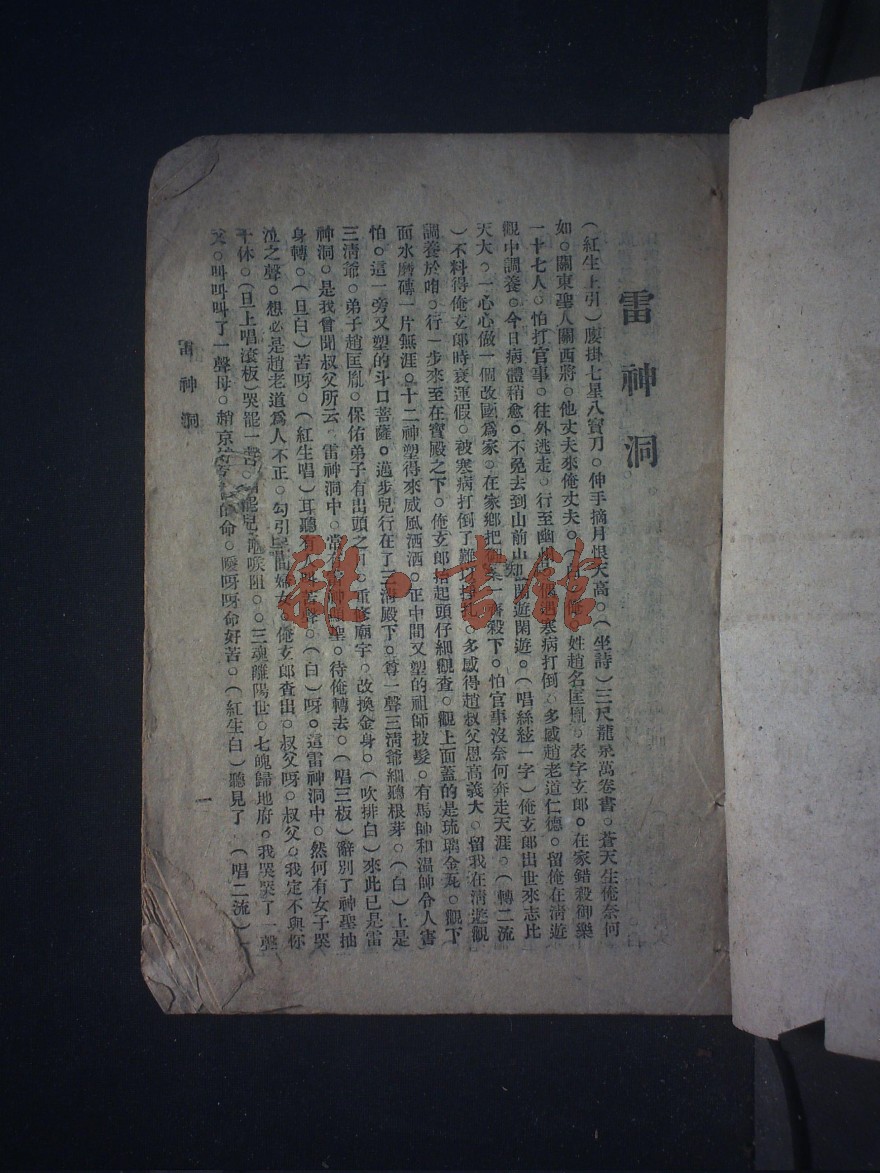 雷神洞
(紅生上引)腰掛七星八寶刀。伸手摘月恨天高。(坐詩)三尺龍泉萬卷書。蒼天生俺奈何
如。關東聖人關西將。他丈夫來俺丈夫。姓趙名匡胤。表字玄郎。在家錯殺御樂
一十七人。怕打官事。往外逃走。行至幽州寒病打倒。多感趙老道仁德。留俺在清遊
觀中調養。今日病體稍愈。不免去到山前山後閑遊閑遊。(唱絲絃一字)俺玄郎出世來志比
天大。一心心做一個改國爲家。在家鄉把御一齊殺下。怕官事沒奈何奔走天涯。(轉二流
)不料得俺玄郎時衰運假。被寒病打倒了難以掙扎。多感得趙叔父恩高義大。留我在清遊觀
調養於咱。行一步來至在寶殿之下。俺玄郎抬起頭仔細觀查。觀上面蓋的是琉璃金瓦。觀下
面水磨磚一片無涯。十二神塑得來威風洒洒。正中間又塑的祖師披髮。有馬帥和溫帥令人害
怕。這一旁又塑的斗口菩薩。邁步兒行在了三清殿下。尊一聲三清爺細聽根芽。(白)上是
三清爺。弟子趙匡胤。保佑弟子有出頭之日。重修廟宇。改換金身。(吹排白)來此已是雷
神洞。是我曾聞叔父所云。雷神洞中。常有神聖。待俺轉去。(唱三板)辭別了神聖抽
身轉。(旦白)苦呀。(紅生唱)耳聽有聲。(白)呀。這雷神洞中。然何有女子哭
泣之聲。想必是趙老道爲人不正。勾引民間婦女。俺玄郎查出。叔父呀。叔父。我定不與你
干休。(旦上唱滾板)哭罷一咽喉阻。三魂離陽世。七魄歸地府。我哭哭了一聲
父。叫叫叫了一聲母。趙京的命。噯呀呀命好苦。(紅生白)聽見了。(唱二流)
雷神洞
一
雜·書館